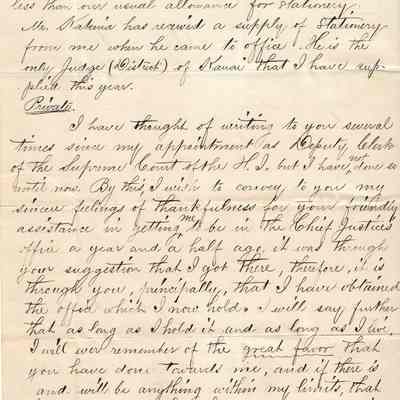 less than our usual allowance for stationery.
Mr. Kakina has received a supply of Stationery
from me when he came to office. He is the
only Judge (District) of Kauai that I have sup-
plied this year.
Private.
I have thought of writing to you several
times since my appointment as Deputy Clerk
of the Supreme Court of the H. I. but I have not done so
until now. By this I wish to convey to you my
sincere feelings of thankfulness for your friendly
assistance in getting me to be in the Chief Justice's
office a year and a half ago, it was through
your suggestion that I got there, therefore, it is
through you, principally, that I have obtained
the office which I now hold. I will say further
that as long as I hold it and as long as I live,
I will ever remember of the great favor that
you have done towards me, and if there is
and will be anything within my limits, that